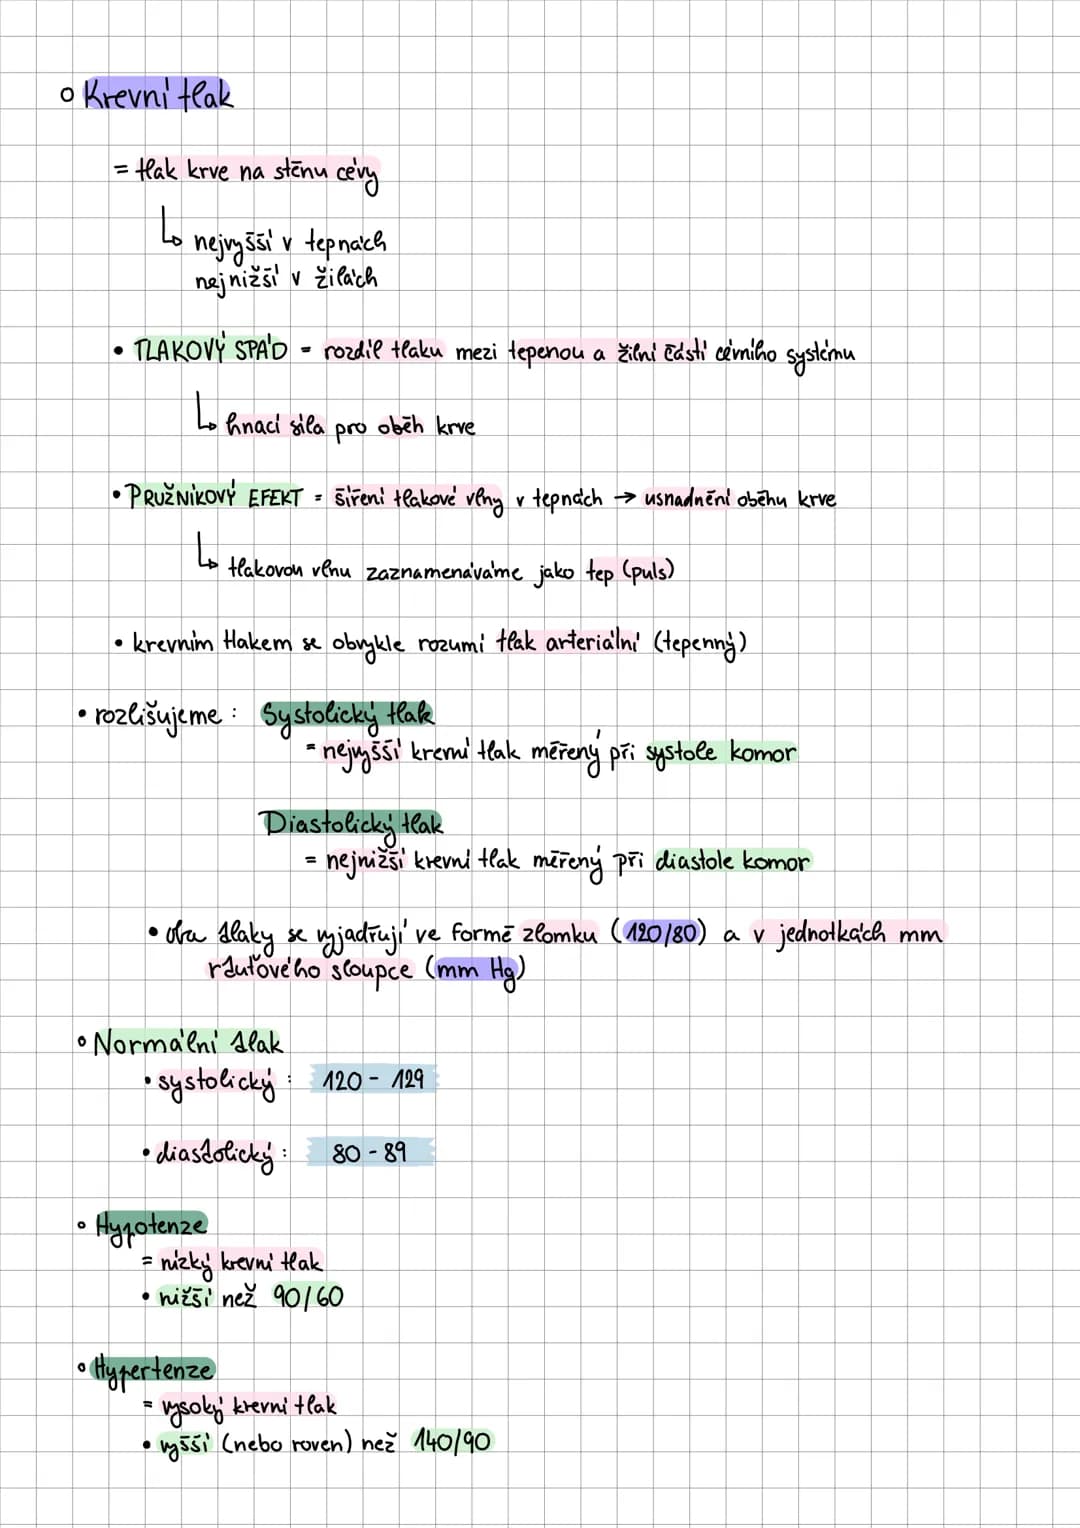 Krevní tlak
= tlak krve na stěnu cévy
nejvyšší v tepnách
nejnižší v žilách
• TLAKOVÝ SPÁD = rozdíl tlaku mezi tepenou a žilní částí cévního systému
hnací síla pro oběh krve
• PRUŽNÍKOVÝ EFEKT = šíření tlakové vlny v tepnách → usnadnění oběhu krve
tlakovou vlnu zaznamenáváme jako tep (puls)
• krevním tlakem se obvykle rozumí tlak arteriální (tepenný)
• rozlišujeme : Systolický tlak
= nejvyšší krevní tlak měřený při systole komor
Diastolický tlak
= nejnižší krevní tlak měřený při diastole komor
• oba tlaky se vyjadřují ve formě zlomku (120/80) a v jednotkách mm
rtuťového sloupce (mm Hg)
Normální tlak
• systolický : 120 - 129
• diastolický : 80 - 89
Hypotenze
= nízký krevní tlak
• nižší než 90/60
Hypertenze
= vysoký krevní tlak
• vyšší (nebo roven) než 140/90